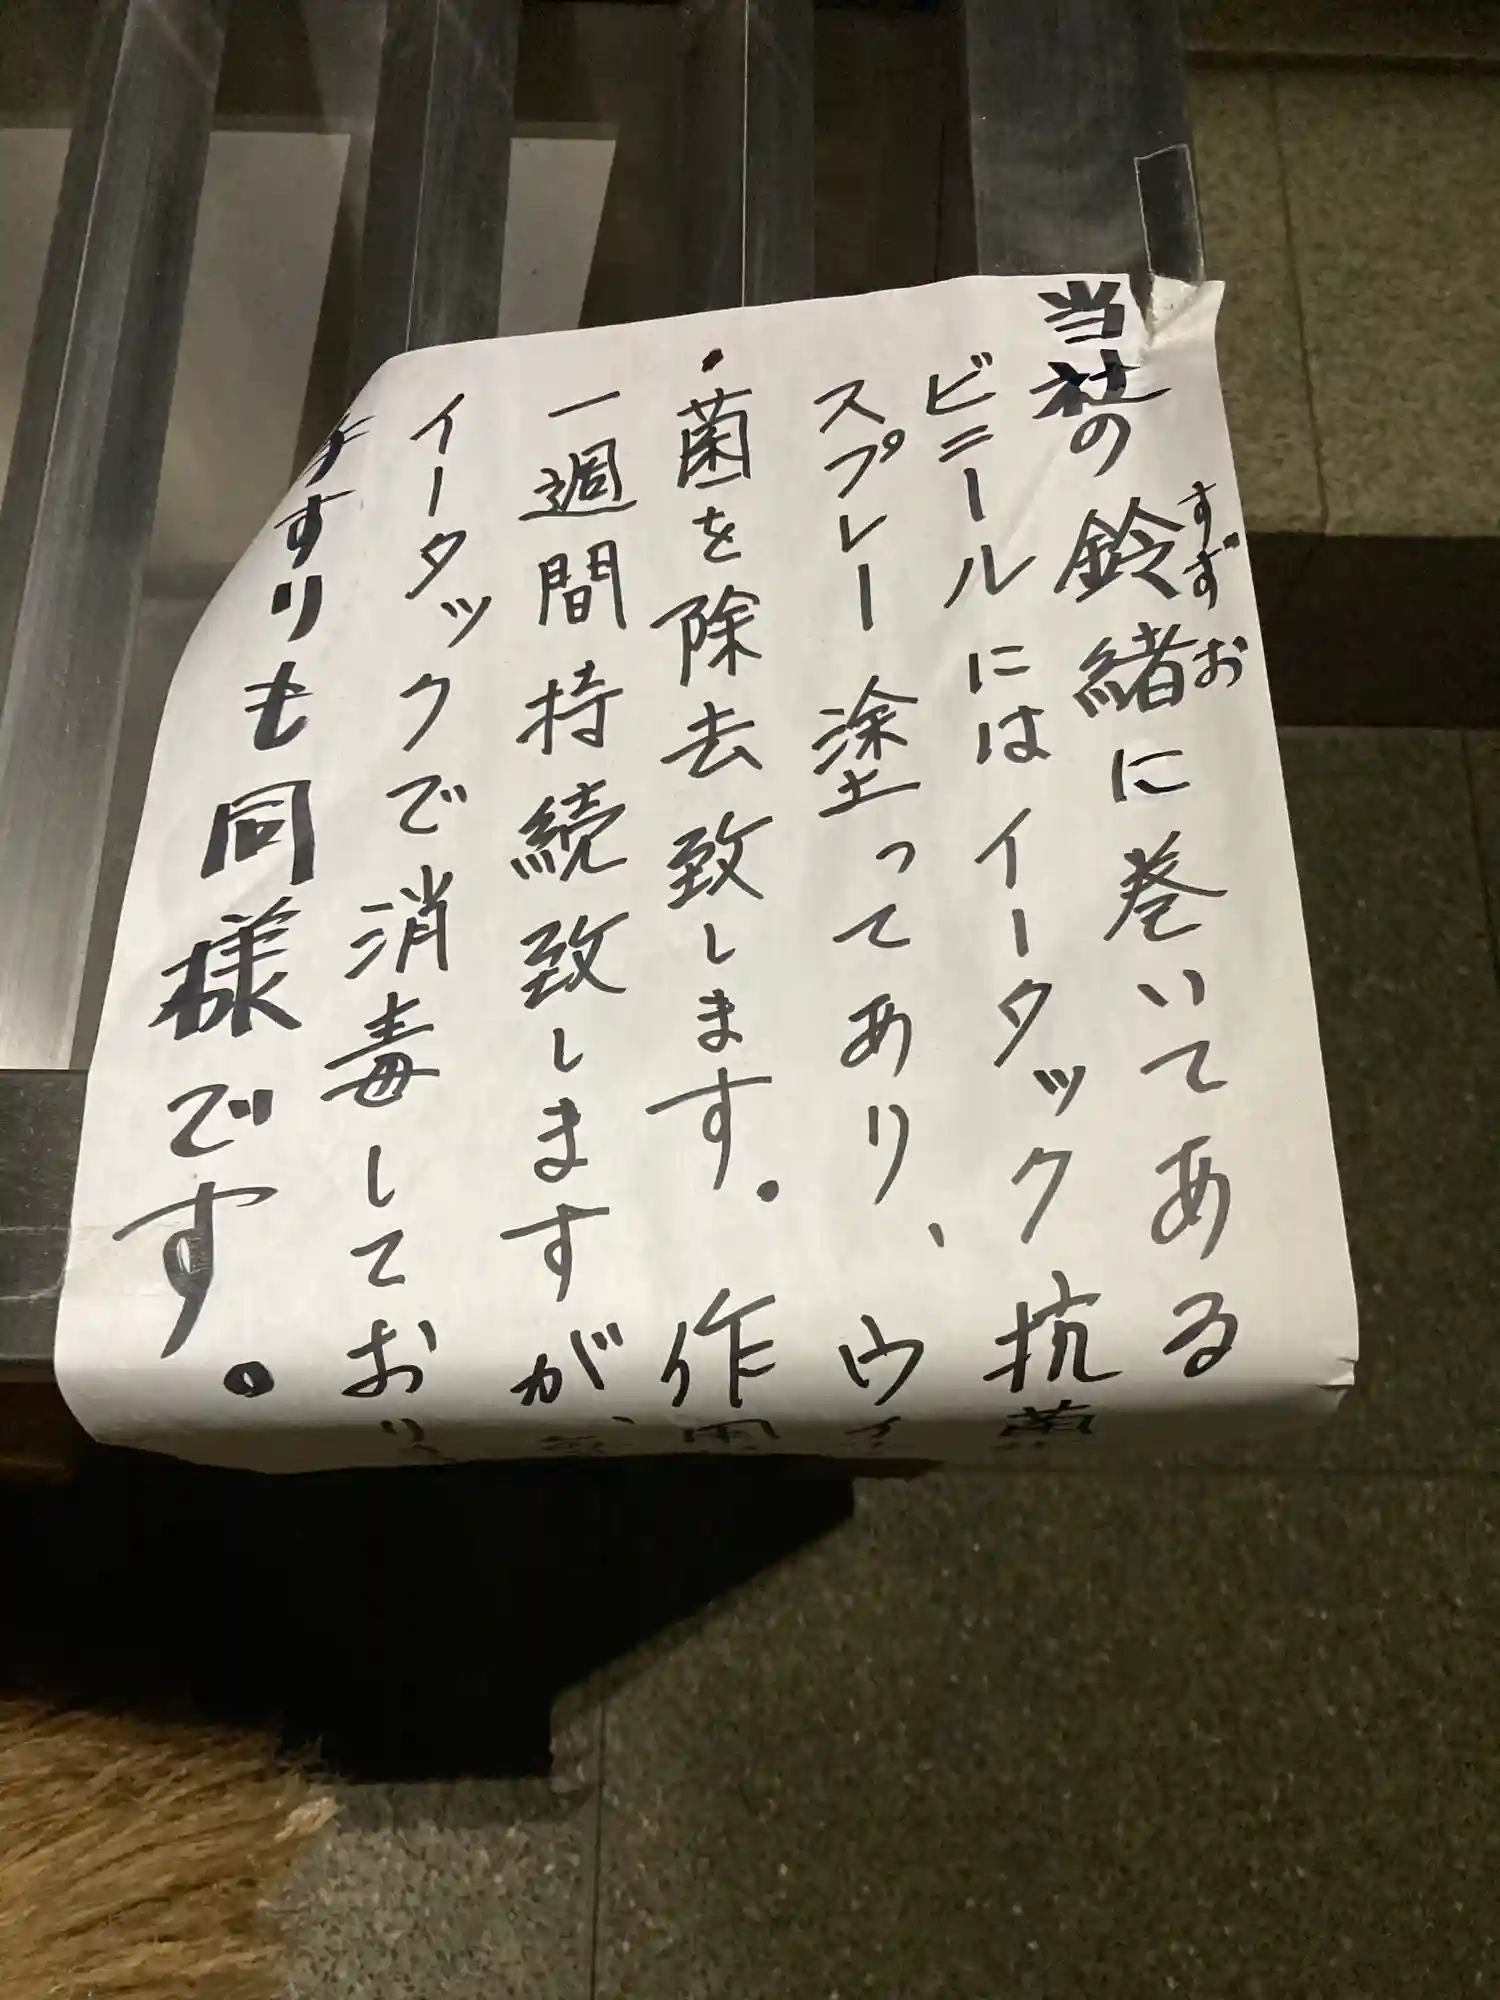 当社の鈴緒に巻いてある
すずお
ビニールにはイータック抗菌
スプレー塗ってあり、ウイ
・菌を除去致します。作用
一週間持続致しますが、
イータックで消毒しており
手すりも同様です。